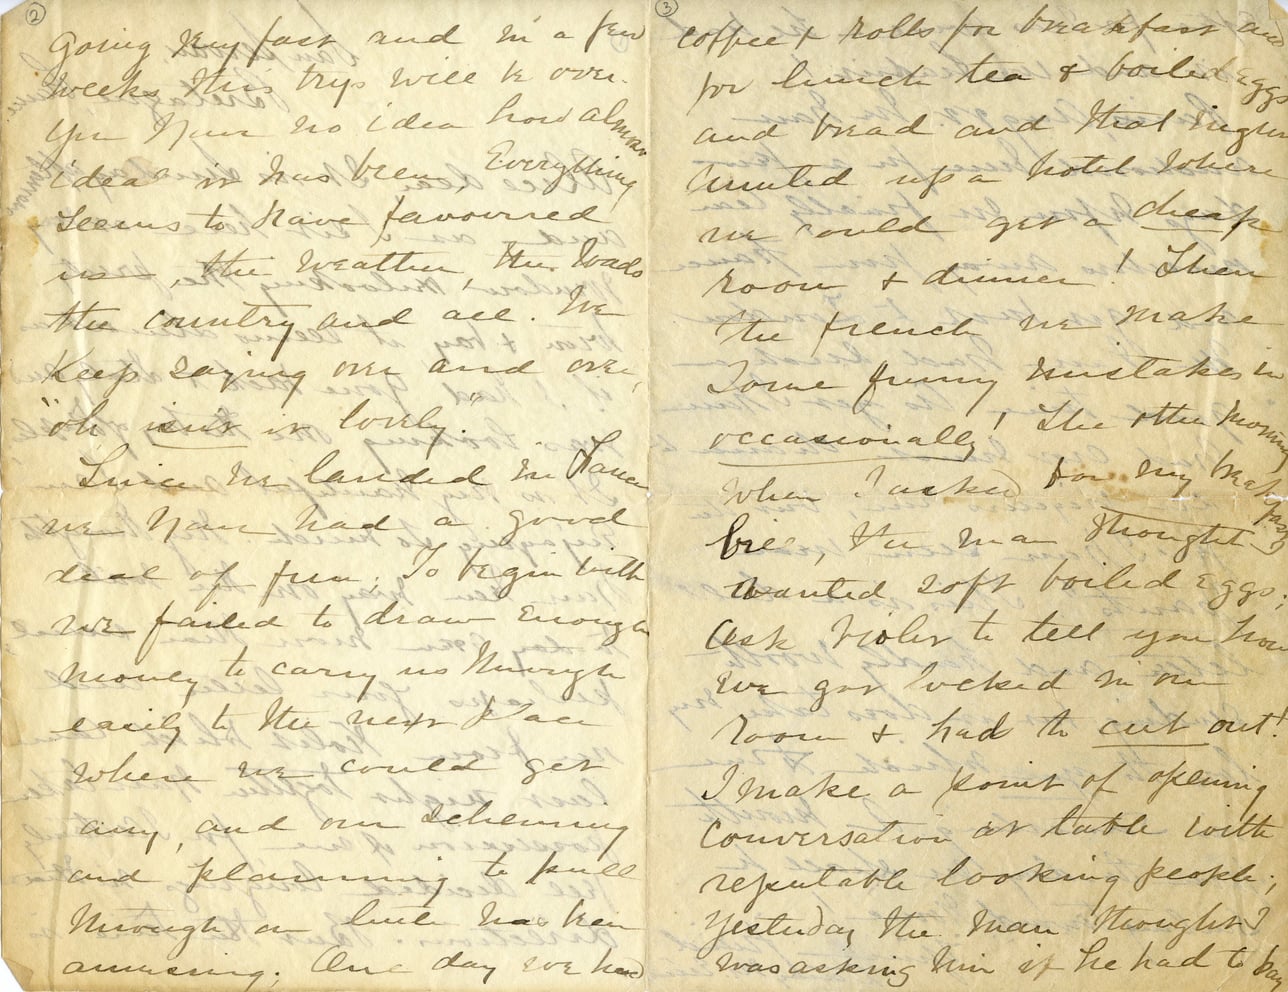 2
going very fast and in a few
weeks this trip will be over.
You have no idea how almost
ideal it has been, Everything
seems to have favoured
us, the weather, the roads
the country and all. We
keep saying over and over,
"oh isn't it lovely."
Since we landed in France
we have had a good
deal of fun. To begin with
we failed to draw enough
money to carry us through
easily to the next place
where we could get
any, and our scheming
and planning to pull
through on little has been
amusing. One day we had
3
coffee & rolls for breakfast and
for lunch tea & boiled eggs
and bread and that night
hunted up a hotel where
we could get a cheap
room & dinner! Then
the french we make
some funny mistakes in
occasionally! The other morning
when I asked for my breakfast
bill, the man thought I
wanted soft boiled eggs.
Ask Violet to tell you how
we got locked in our
room & had to cut out.
I make a point of opening
conversation at table with
reputable looking people;
yesterday the man thought I
was asking him if he had to pay